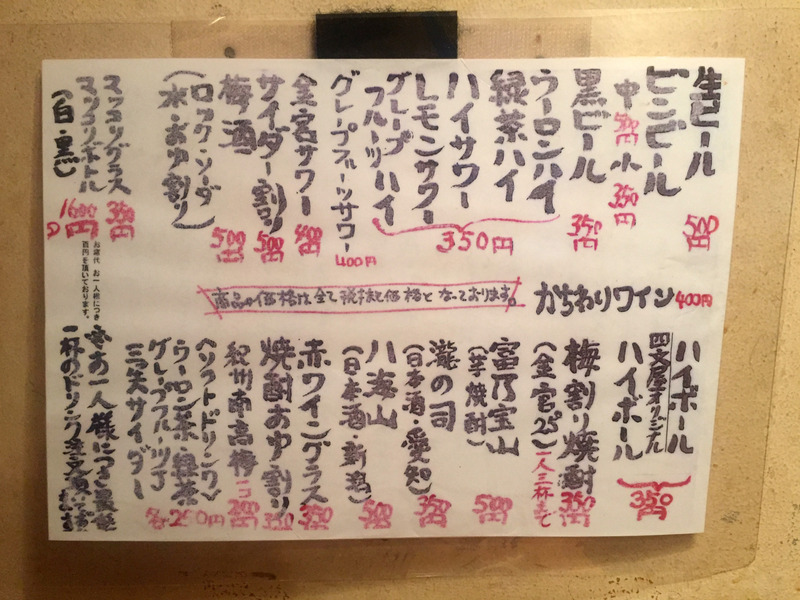 生ビール 500円
ビンビール
中500円 小350円
黒ビール 350円
ウーロンハイ
緑茶ハイ
ハイサワー
レモンサワー
グレープフルーツハイ
350円
グレープフルーツサワー 400円
金宮サワー 400円
サイダー割り 500円
梅酒 500円
(ロック・ソーダ
水・お湯割り)
マッコリグラス 350円
マッコリボトル 1600円
(白・黒)
かちわりワイン 400円
商品の価格は全て税抜き価格となっております。
ハイボール
四文屋オリジナル
ハイボール
350円
梅割り焼酎 350円
(金宮25) 一人三杯まで
富乃宝山 500円
(芋焼酎)
瀧の司 350円
(日本酒・愛知)
八海山 500円
(日本酒・新潟)
赤ワイングラス 350円
焼酎お湯割り 350
紀州南高梅 一コ200円
〈ソフトドリンク〉
ウーロン茶・緑茶
グレープフルーツ
三矢サイダー
各250円
お席代 お一人様につき
百円を頂いております。
お一人様につき最低
一杯のドリンク